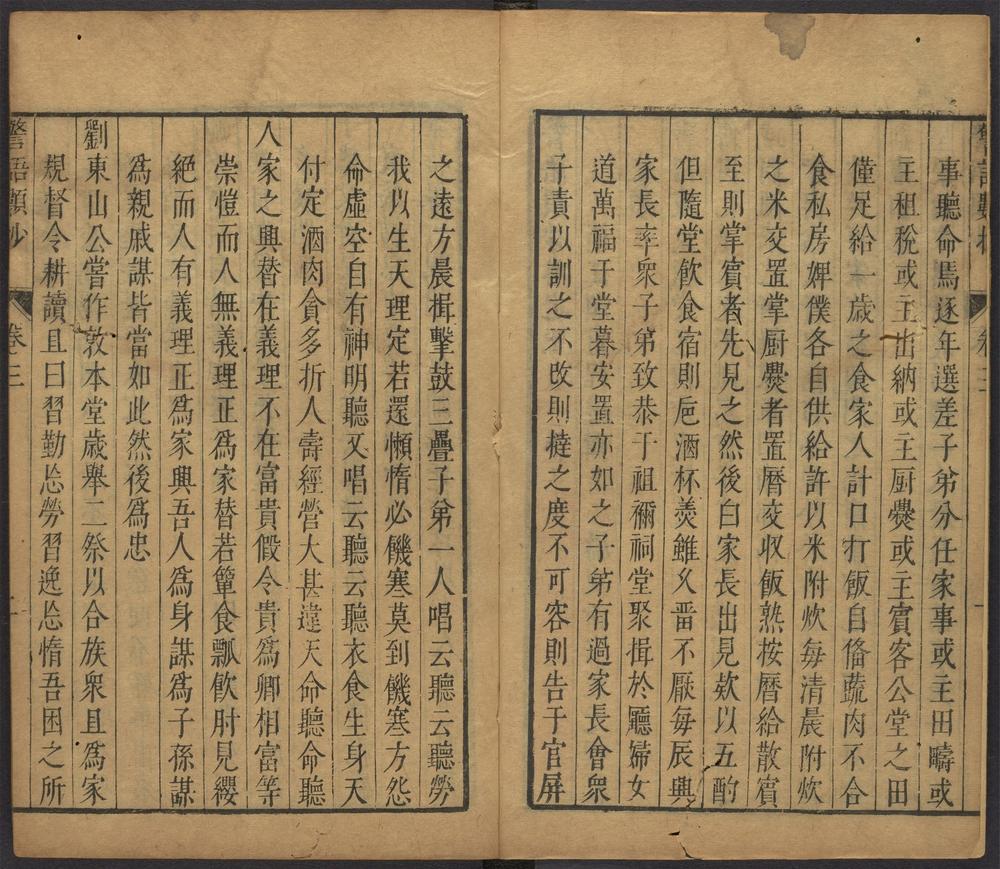 事聽命焉逐年選差子弟分任家事或主田疇或
主租稅或主出納或主厨爨或主賓客公堂之田
僅足給一歲之食家人計口打飯自俻蔬肉不合
食私房婢僕各自供給許以米附炊每清晨附炊
之米交置掌厨爨者置曆交収飯熟按曆給散賓
至則掌賓者先見之然後白家長出見欵以五酌
但隨堂飲食宿則巵酒杯羮雖久畱不厭每辰興
家長率衆子弟致恭于祖禰祠堂聚揖於廳婦女
道萬福于堂暮安置亦如之子弟有過家長會衆
子責以訓之不改則撻之度不可容則告于官屏
之遠方晨揖擊鼓三疊子弟一人唱云聽云聽勞
我以生天理定若還懶惰必饑寒莫到饑寒方怨
命虛空自有神明聽又唱云聽云聽衣食生身天
付定酒肉貪多折人壽經營大甚違天命聽命聽
人家之興替在義理不在富貴假令貴爲卿相富等
崇愷而人無義理正爲家替若簞食瓢飲肘見纓
絕而人有義理正爲家興吾人爲身謀爲子孫謀
爲親戚謀皆當如此然後爲忠
劉東山公嘗作敦本堂歲舉二祭以合族衆且爲家
規督令耕讀且曰習勤忘勞習逸忘惰吾困之所
警語類抄
卷三